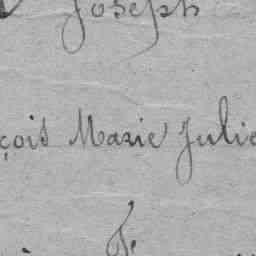 Joseph
çois Marie Julie